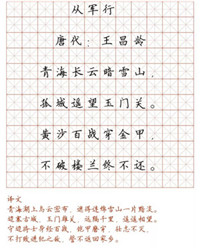 从军行
唐代：王昌龄
青海长云暗雪山，
孤城遥望玉门关。
黄沙百战穿金甲，
不破楼兰终不还。
译文
青海湖上乌云密布，遮得连绵雪山一片黯淡。
边塞古城，玉门雄关，远隔千里，遥遥相望。
守边将士身经百战，铠甲磨穿，壮志不灭，
不打败进犯之敌，誓不返回家乡。